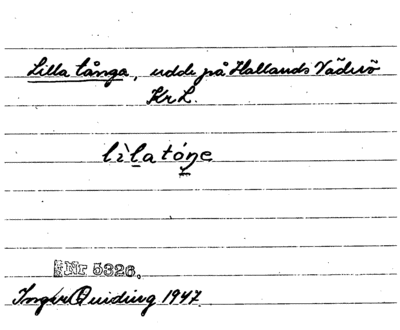 Lilla tånga, udde på Hallands Väderö
Kr L.
lìl̠atóŋe
Nr 5326.
Inger Quiding 1947